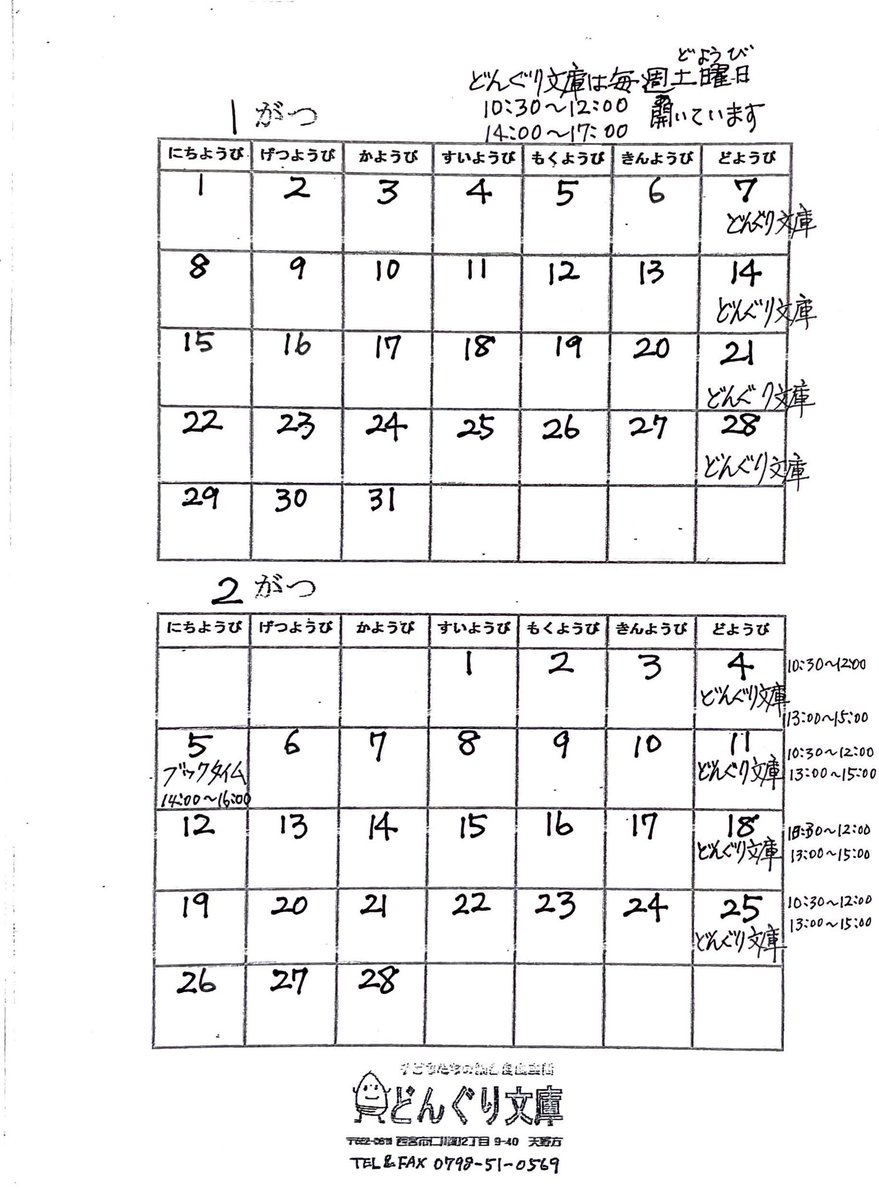 どようび
どんぐり文庫は毎週土曜日
10:30〜12:00 開いています
14:00〜17:00
1 がつ
にちようび げつようび かようび すいようび もくようび きんようび どようび
1 2 3 4 5 6 7
どんぐり文庫
8 9 10 11 12 13 14
どんぐり文庫
15 16 17 18 19 20 21
どんぐり文庫
22 23 24 25 26 27 28
どんぐり文庫
29 30 31
2 がつ
にちようび げつようび かようび すいようび もくようび きんようび どようび
1 2 3 4 10:30〜12:00
どんぐり文庫
13:00〜15:00
5 6 7 8 9 10 11 10:30〜12:00
ブックタイム どんぐり文庫 13:00〜15:00
14:00〜16:00
12 13 14 15 16 17 18 10:30〜12:00
どんぐり文庫 13:00〜15:00
19 20 21 22 23 24 25 10:30〜12:00
どんぐり文庫 13:00〜15:00
26 27 28
子どもたちの
どんぐり文庫
西宮市仁川町2丁目 9-40 天野方
TEL & FAX 0798-51-0569